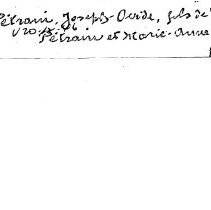 Pétrain, Joseph-Ovide, fils de
Pétrain et Marie-Anne